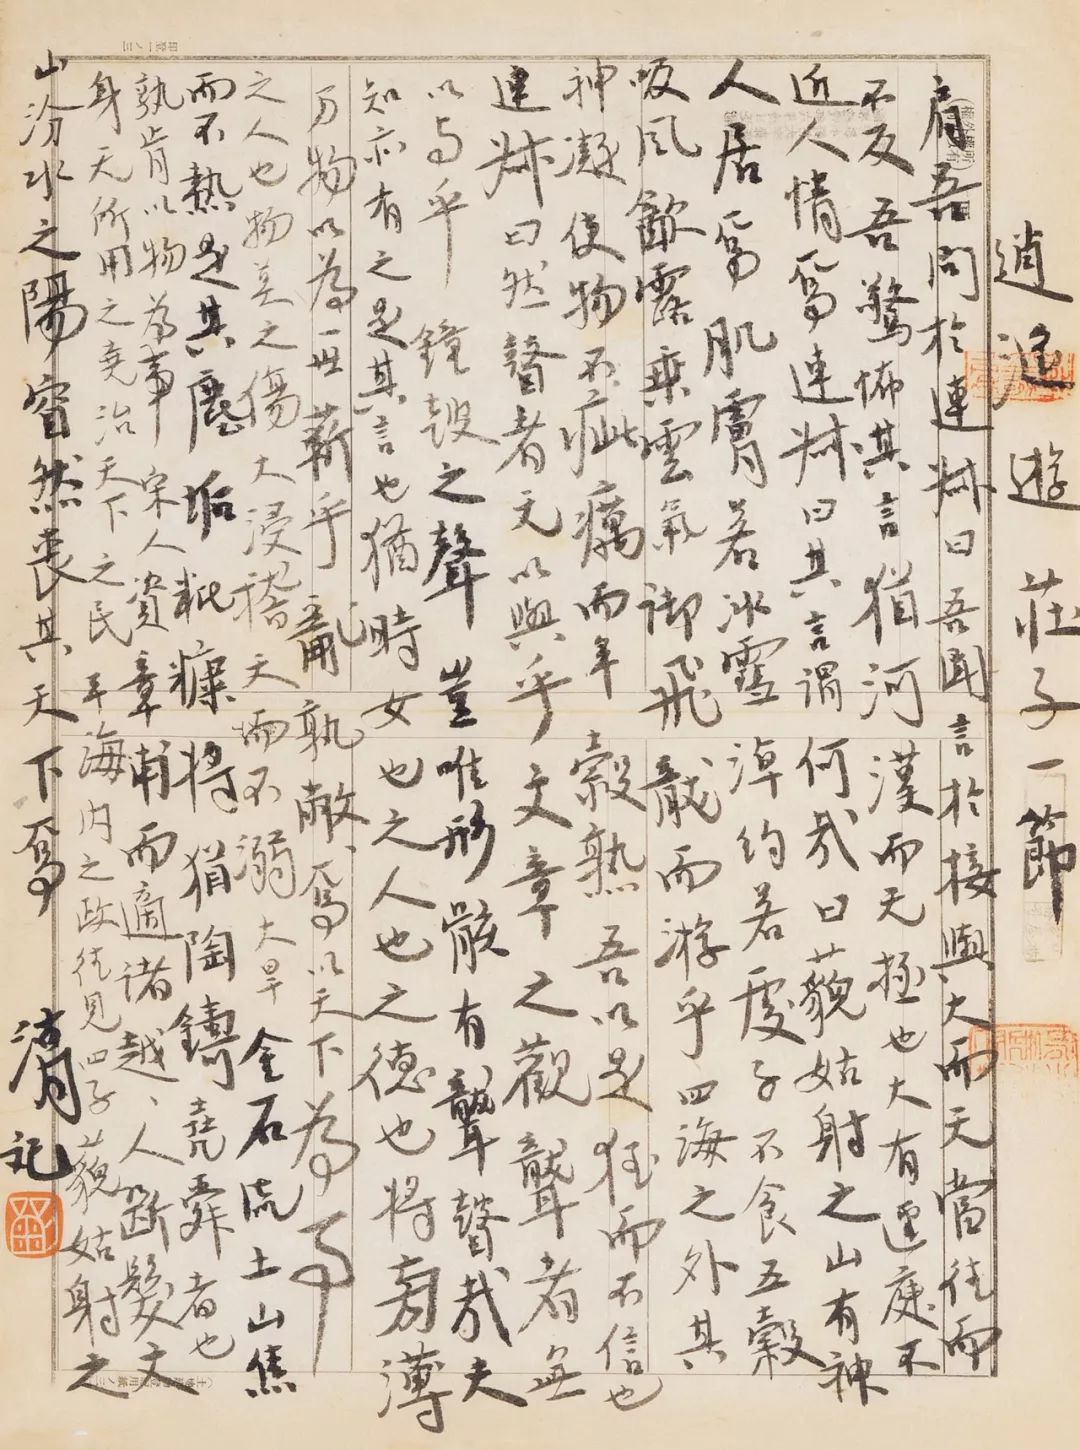 逍遥遊 莊子一節
肩吾問於連叔曰吾聞言於接輿大而无當往而
不反吾驚怖其言猶河漢而无極也大有逕庭不
近人情焉連叔曰其言謂何哉曰藐姑射之山有神
人居焉肌膚若冰雪淖約若處子不食五穀
吸風飲露乘雲氣御飛龍而游乎四海之外其
神凝使物不疵癘而年穀熟吾以是狂而不信也
連叔曰然瞽者无以與乎文章之觀聾者無
以与乎鐘鼓之聲豈唯形骸有聾瞽哉夫
知亦有之是其言也猶時女也之人也之德也將旁薄
万物以為一世蘄乎亂孰敝敝焉以天下為事
之人也物莫之傷大浸稽天而不溺大旱金石流土山焦
而不熱是其塵垢粃糠將猶陶鑄堯舜者也
孰肯以物為事宋人資章甫而適諸越越人斷髮文
身无所用之堯治天下之民平海內之政往見四子藐姑射之
山汾水之陽窅然喪其天下焉
清記